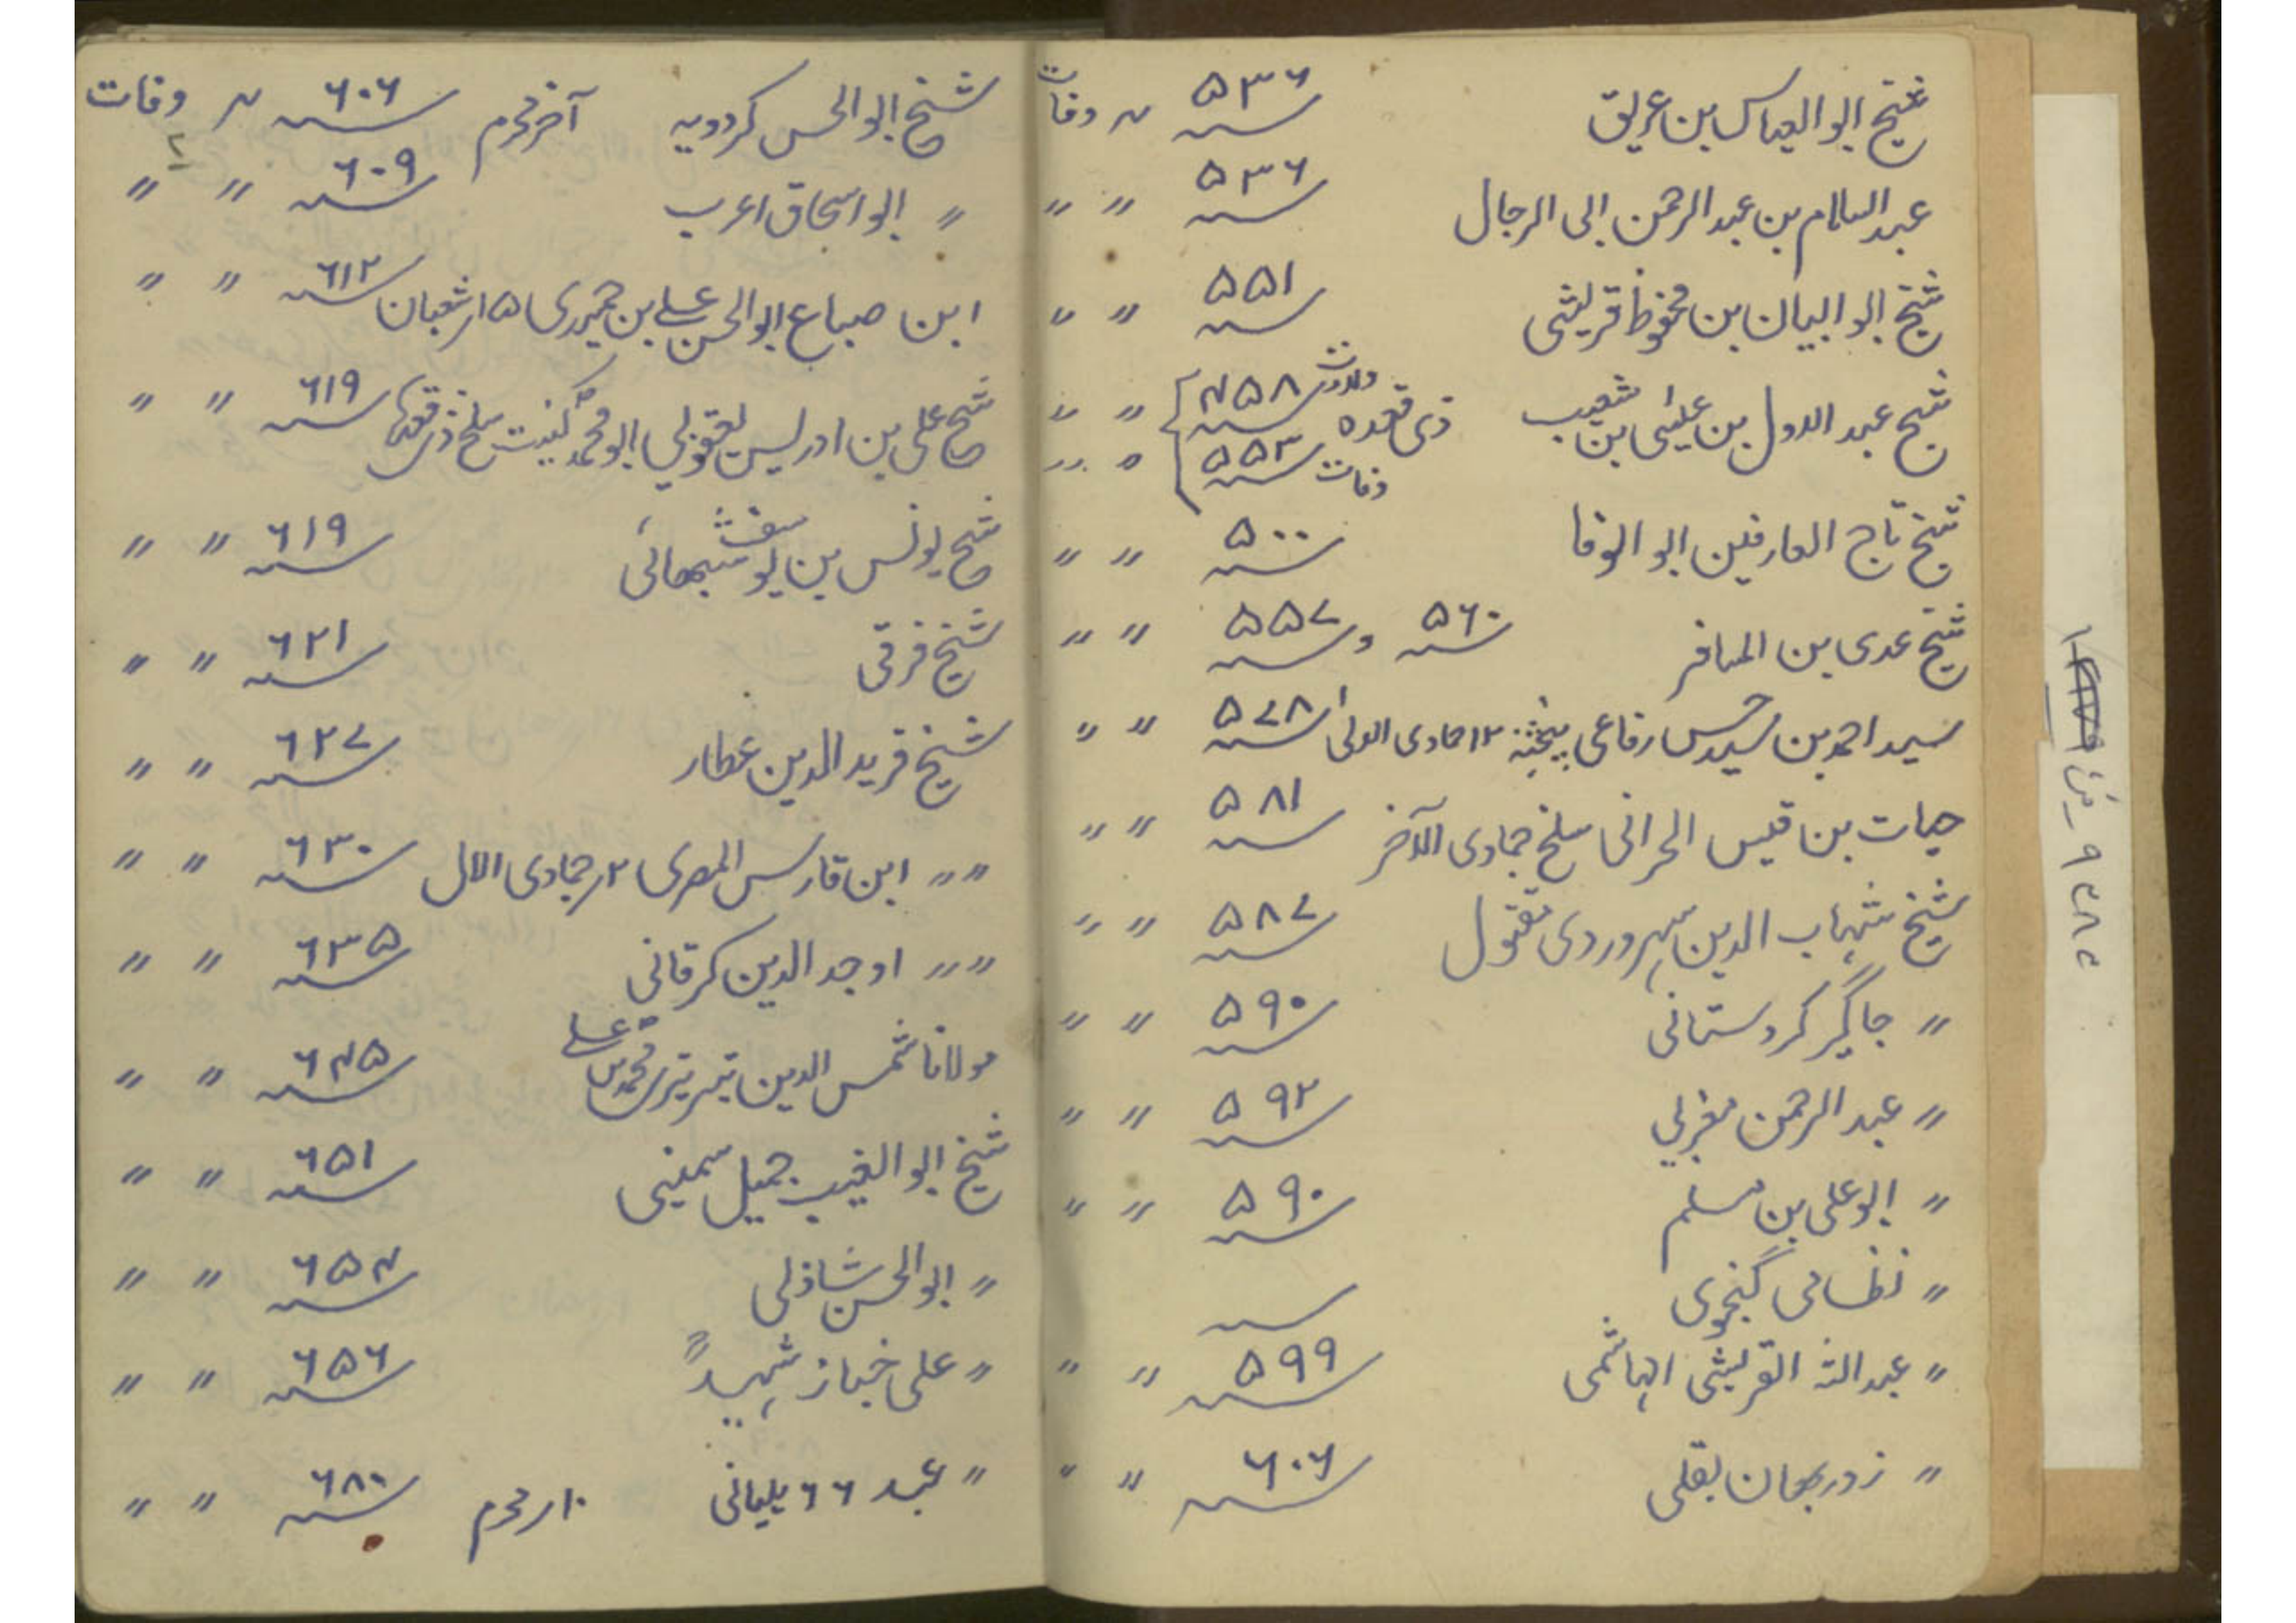 شیخ ابو العباس بن عریق ۵۳۶ ؁ ر وفات
عبد السلام بن عبد الرحمن ابی الرجال ۵۳۶ ؁ " "
شیخ ابو البیان بن محفوظ قریشی ۵۵۱ ؁ " "
شیخ عبد الاول بن عیسٰی بن شعیب ذی قعدہ ولادت ۴۵۸ ؁ " "
وفات ۵۵۳ ؁ " "
شیخ تاج العارفین ابو الوفا ۵۰۰ ؁ " "
شیخ عدی بن المسافر ۵۶۰ ؁ و ۵۵۷ ؁ " "
سید احمد بن سید حسن رفاعی پنجشنبہ ۱۲ جمادی الاولیٰ ۵۷۸ ؁ " "
حیات بن قیس الحرانی سلخ جمادی الآخر ۵۸۱ ؁ " "
شیخ شہاب الدین سہروردی مقتول ۵۸۷ ؁ " "
" جاگیر کردستانی ۵۹۰ ؁ " "
" عبد الرحمن مغربی ۵۹۲ ؁ " "
" ابو علی بن مسلم ۵۹۰ ؁ " "
" نظامی گنجوی ؁
" عبد اللہ القریشی الہاشمی ۵۹۹ ؁ " "
" زوربھان بقلی ۶۰۶ ؁ " "
شیخ ابو الحسن کردویہ آخر محرم ۶۰۶ ؁ ر وفات
" ابو اسحاق اعرب ۶۰۹ ؁ " "
ابن صباع ابو الحسن علی بن حمیری ۱۵ر شعبان ۶۱۲ ؁ " "
شیخ علی بن ادریس یعقوبی ابو محمد کنیت سلخ ذی قعدہ ۶۱۹ ؁ " "
شیخ یونس بن یوسف شیبھائی ۶۱۹ ؁ " "
شیخ فرقی ۶۲۱ ؁ " "
شیخ فرید الدین عطار ۶۲۷ ؁ " "
" " ابن فارس المصری ۲ر جمادی الال ۶۳۰ ؁ " "
" " اوجد الدین کرقانی ۶۳۵ ؁ " "
مولانا شمس الدین تبریزی محمد بن علی ۶۴۵ ؁ " "
شیخ ابو الغیب جمیل سمینی ۶۵۱ ؁ " "
" ابو الحسن شاذلی ۶۵۴ ؁ " "
" علی خباز شہید ۶۵۶ ؁ " "
" عبد ۶۶ بلیانی ۱۰ر محرم ۶۸۰ ؁ " "